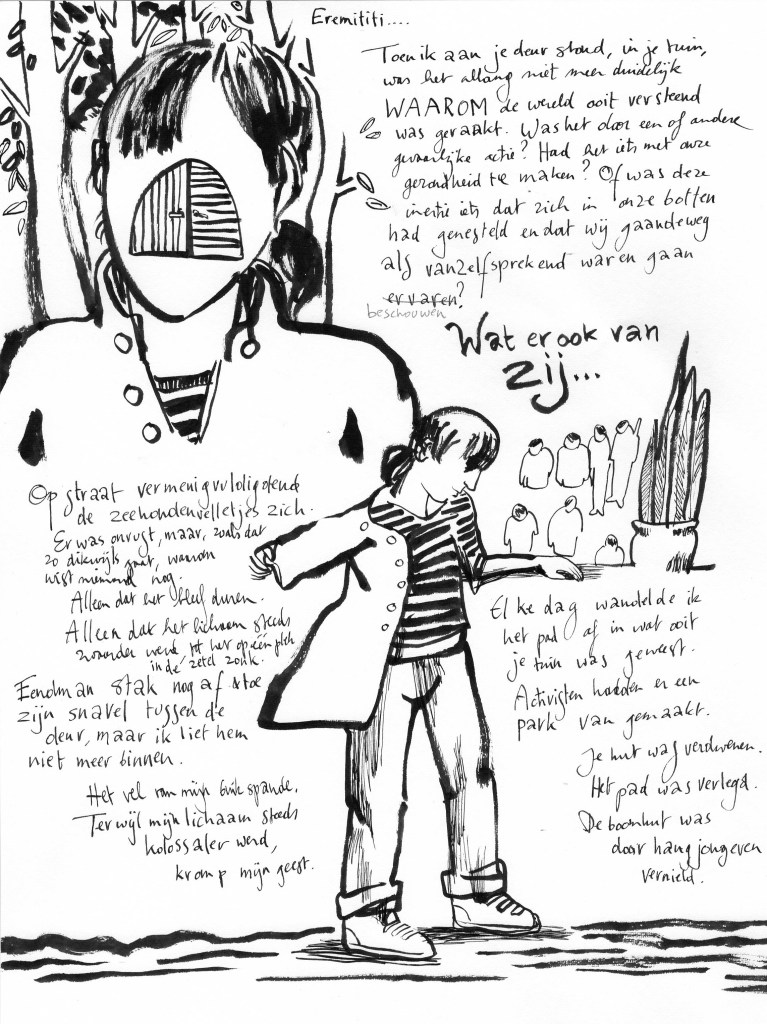 Eremititi....
Toen ik aan je deur stond, in je tuin,
was het allang niet meer duidelijk
WAAROM de wereld ooit versteend
was geraakt. Was het door een of andere
gevaarlijke actie? Had het iets met onze
gezondheid te maken? Of was deze
inertie iets dat zich in onze botten
had genesteld en dat wij gaandeweg
als vanzelfsprekend waren gaan
ervaren?
beschouwen
Wat er ook van
zij...
Op straat vermenigvuldigden
de zeehondenvelletjes zich.
Er was onrust, maar, zoals dat
zo dikwijls gaat, waarom
wist niemand nog.
Alleen dat het bleef duren.
Alleen dat het lichaam steeds
zwaarder werd tot het op één plek
in de zetel zonk.
Eendman stak nog af & toe
zijn snavel tussen de
deur, maar ik liet hem
niet meer binnen.
Het vel van mijn buik spande.
Terwijl mijn lichaam steeds
kolossaler werd,
kromp mijn geest.
Elke dag wandelde ik
het pad af in wat ooit
je tuin was geweest.
Activisten hadden er een
park van gemaakt.
Je hut was verdwenen.
Het pad was verlegd.
De boomhut was
door hangjongeren
vernield.